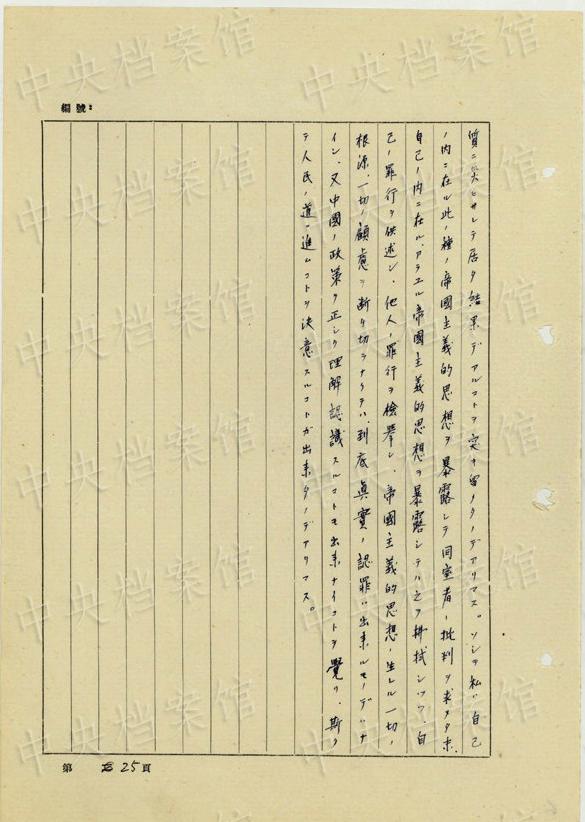 編號：
質ニ災ヒサレテ居タ結果デアルコトヲ突キ留メタノデアリマス。ソシテ私ハ自己
ノ内ニ在ル此ノ種ノ帝國主義的思想ヲ暴露シテ同室者ノ批判ヲ求メタ
自己ノ内ニ在ル、アラユル帝國主義的思想ヲ暴露シテハ之ヲ拂拭シツツ、自
己ノ罪行ヲ供述シ、他人ノ罪行ヲ檢擧シ、帝國主義的思想ノ生レル一切ノ
根源、一切ノ顧慮ヲ断チ切ラナクテハ、到底眞實ノ認罪ハ出来ルモノデハナ
イシ、又中國ノ政策ヲ正シク理解認識スルコトモ出来ナイコトヲ覺リ、斯クシ
テ人民ノ道ヘ進ムコトヲ決意スルコトガ出来タノデアリマス。
第 25 頁
中央档案馆